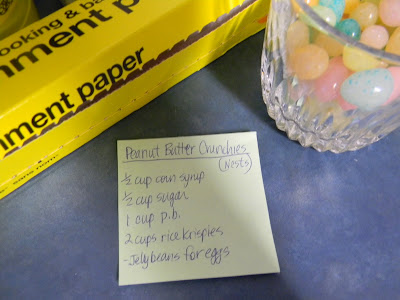 ooking & ba
nment paper
nment paper
sans nom
Peanut Butter Crunchies
(Nests)
1/2 cup corn syrup
1/2 cup sugar
1 cup p.b.
2 cups rice krispies
-Jellybeans for eggs